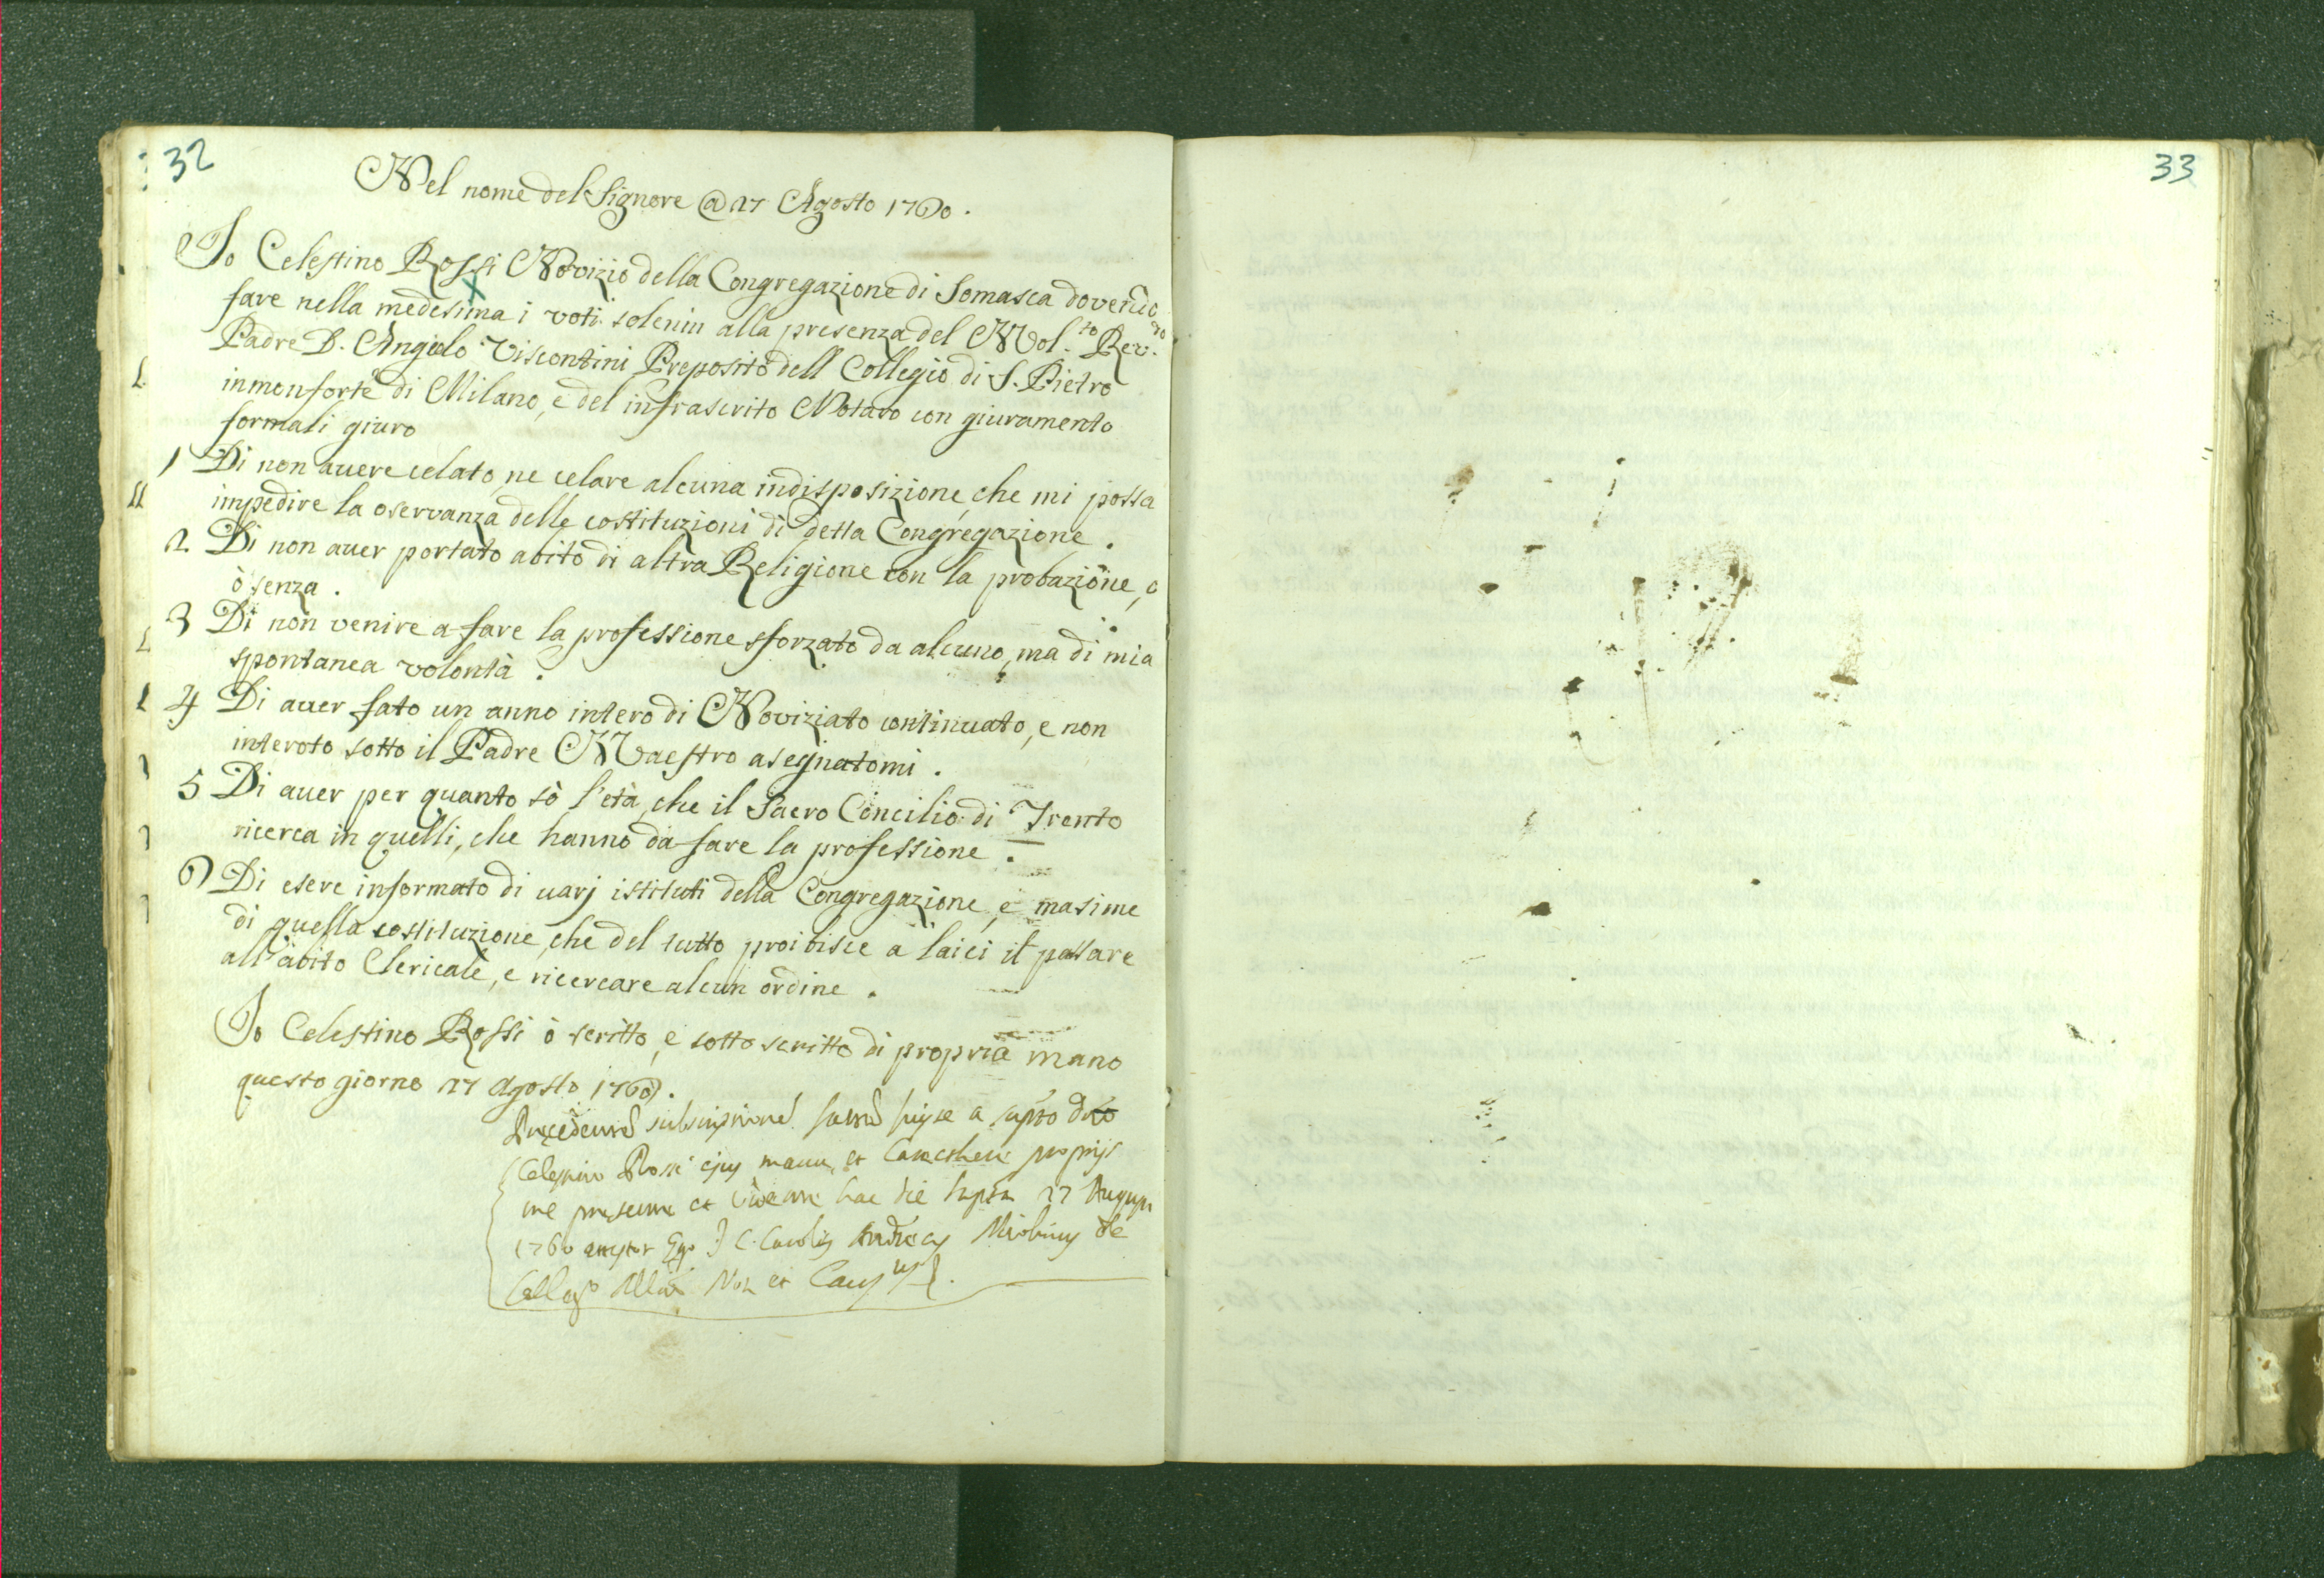 32
Nel nome del Signore @ 27 Agosto 1760.
Io Celestino Rossi Novizio della Congregazione di Somasca dovendo
fare nella medesima i voti solenni alla presenza del Mol.to Rev.do
Padre D. Angielo Viscontini Preposito dell Collegio di S. Pietro
in monforte di Milano, e del infrascrito Notaro con giuramento
formali giuro
1 Di non avere celato, ne celare alcuna indisposizione, che mi possa
impedire la oservanza delle costituzioni di detta Congregazione.
2 Di non auer portato abito di altra Religione con la probazione, o
ò senza.
3 Di non venire a fare la professione sforzato da alcuno, ma di mia
spontanea volontà.
4 Di auer fato un anno intero di Noviziato continuato, e non
interoto sotto il Padre Maestro asegnatomi.
5 Di auer per quanto sò l'età, che il Sacro Concilio di Trento
ricerca in quelli, che hanno da fare la professione.
6 Di esere informato di uarj istituti della Congregazione, e masime
di quella costituzione, che del tutto proibisce a laici il passare
all'abito Clericale, e ricercare alcun ordine.
Io Celestino Rossi ò scritto, e sotto scritto di propria mano
questo giorno 27 Agosto 1760.
fuisse a
Celestino Rossi ejus manu, et Caracthere proprijs
me presente et vidente hac die 27 Augusti
1760 Ego J. C. Carolus de
Not et
33